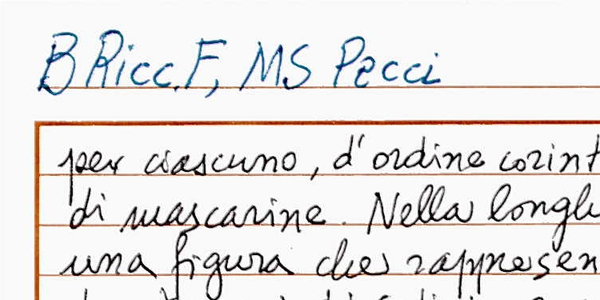 B Ricc. F, MS Pecci
per ciascuno, d'ordine corint
di mascarine. Nella longh
una figura che rappresen